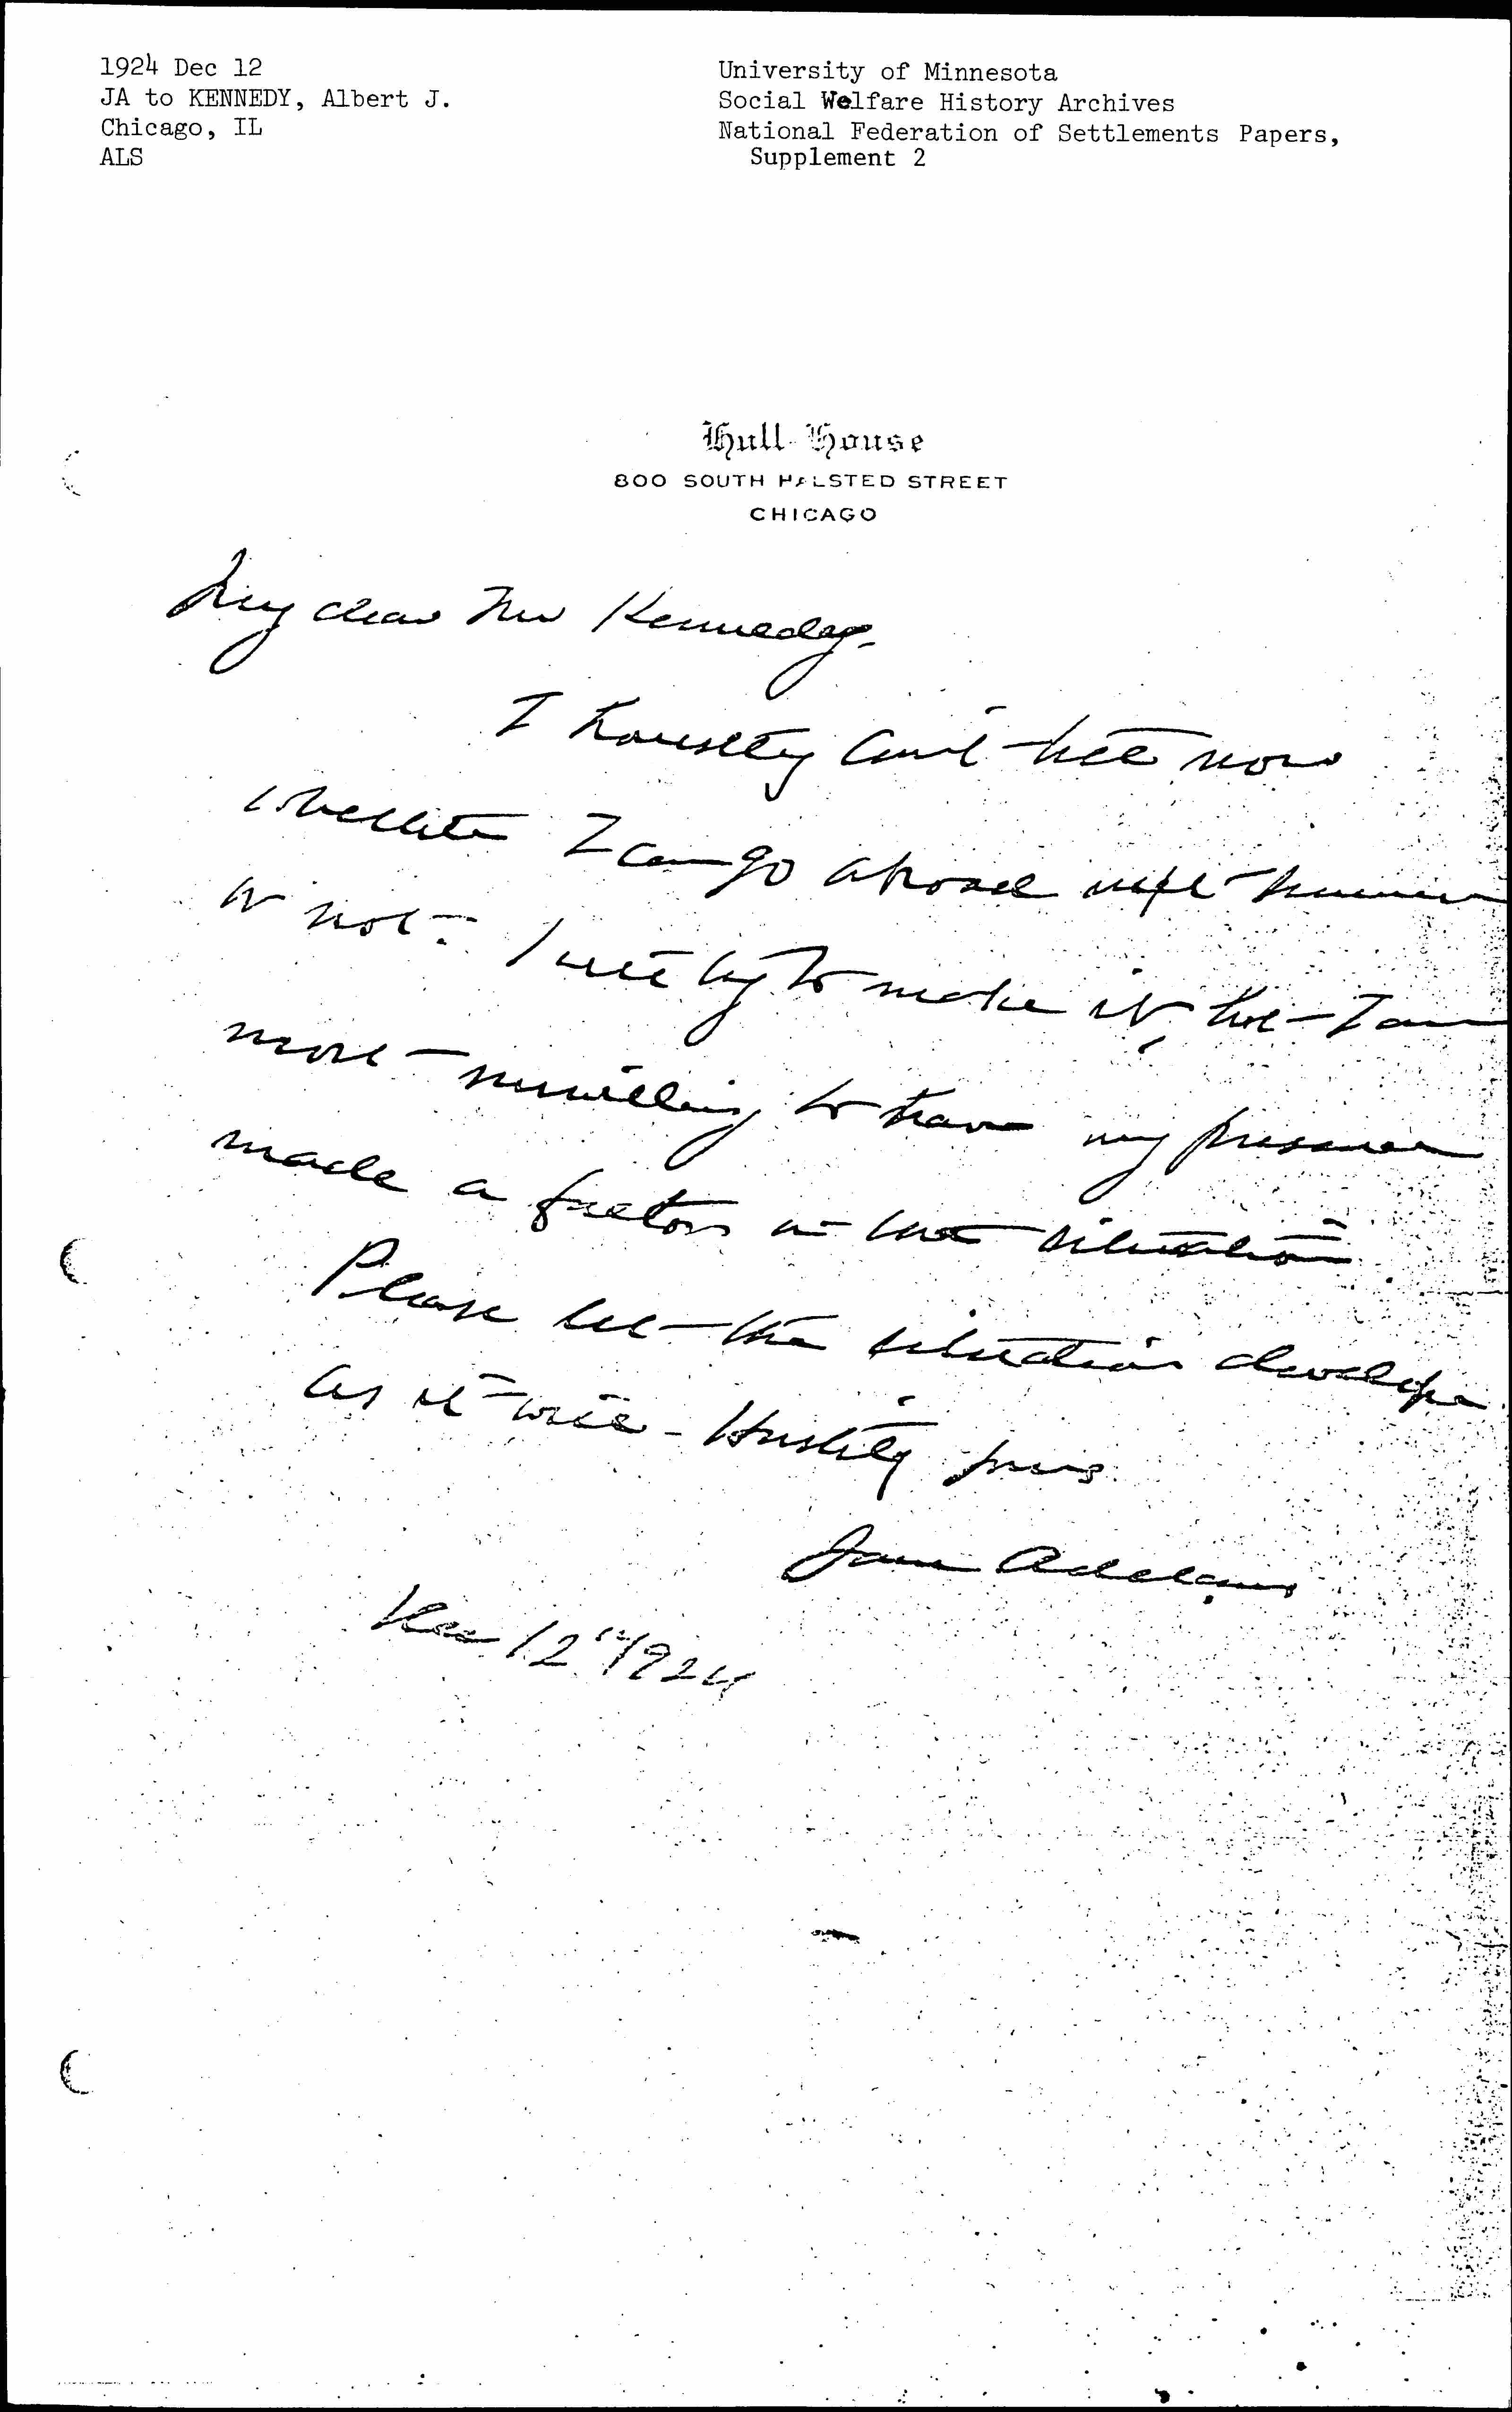 1924 Dec 12
JA to KENNEDY, Albert J.
Chicago, IL
ALS
University of Minnesota
Social Welfare History Archives
National Federation of Settlements Papers,
Supplement 2
Hull-House
800 SOUTH HALSTED STREET
CHICAGO
My dear Mr Kennedy.
I honestly can't tell now
whether I can go abroad next summer
or not. I will try to make it, but I am
most unwilling to have my presence
made a factor in the situation
Please let the situation develope
as it will - Hastily yours
Jane Addams
Dec 12" 1924